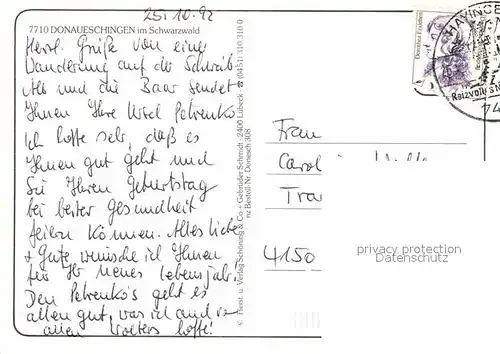 25.10.92
7710 DONAUESCHINGEN im Schwarzwald
Herzl. Grüße von einer
Wanderung auf der Schreib
Alb und die Baar sendet
Ihnen Ihre Ursel Petrenko
Ich hoffe sehr, daß es
Ihnen gut geht und
Sie Ihren Geburtstag
bei bester Gesundheit
feiern können. Alles Liebe
+ Gute wünsche ich Ihnen
für Ihr neues Lebensjahr!
Den Petrenko's geht es
allen gut, was ich auch von
allen Wolters hoffe!
© Farbst. u. Verlag Schöning & Co + Gebrüder Schmidt · 2400 Lübeck · ☎ (0451) 310 310 0
nz Bestell-Nr. Donesch 308
Dorothea Erxleben
HAYINGE
Reizvolle
74
Frau
Carol
Tra
4150
privacy protection
Datenschutz